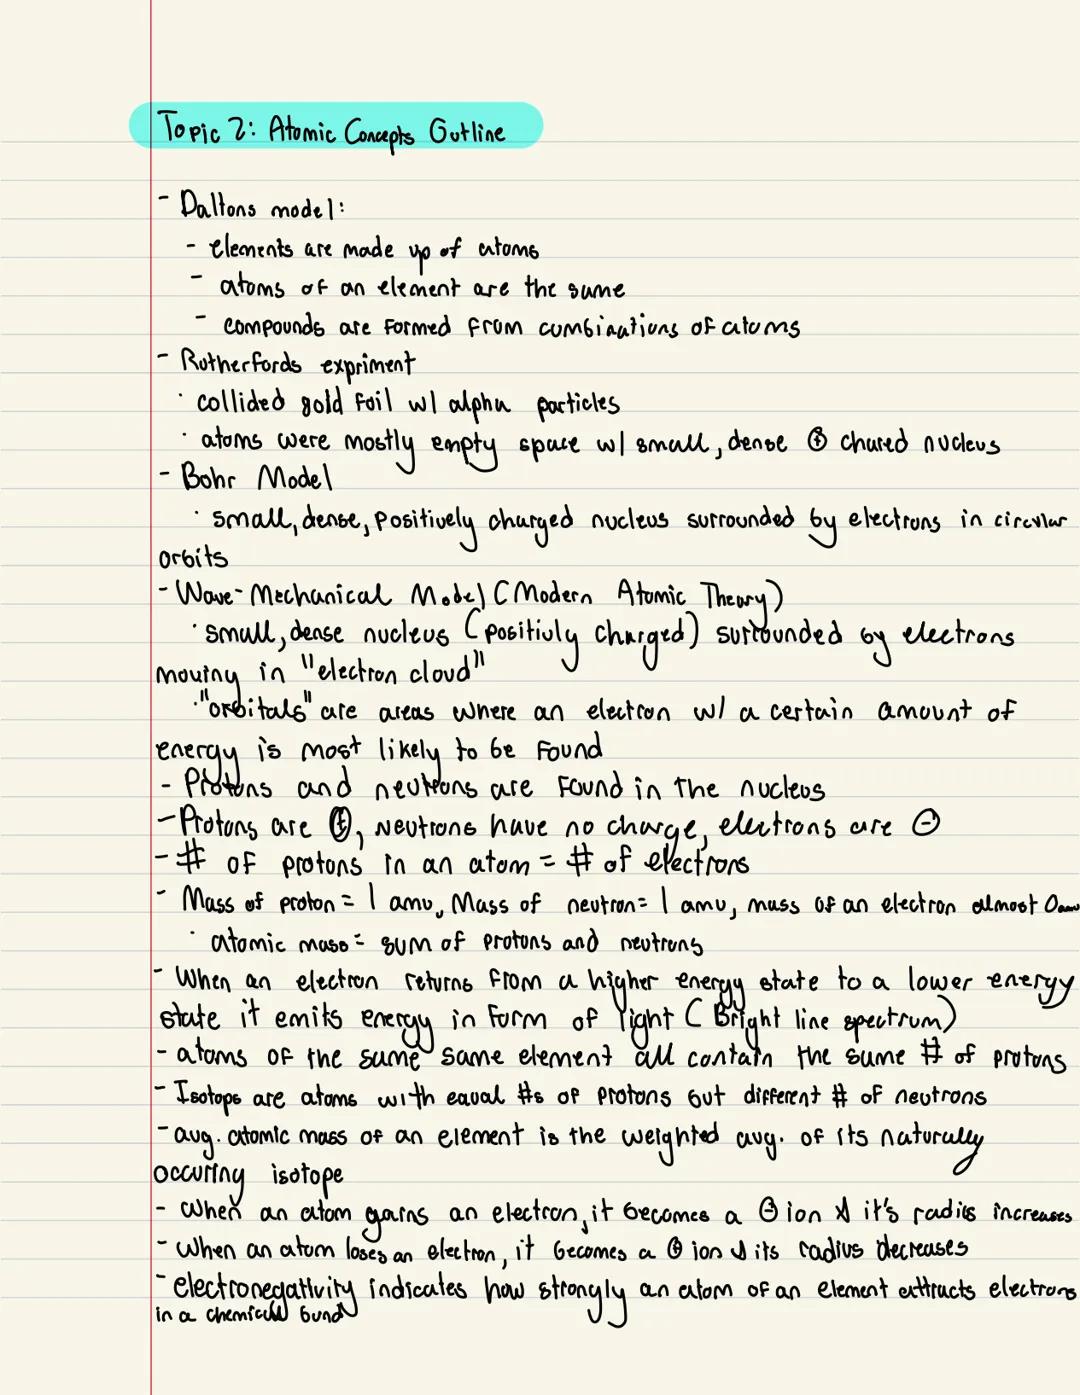 Topic 2: Atomic Concepts Outline
- Daltons model:
- elements are made up of atoms
- atoms of an element are the same
- compounds are formed from combinations of atoms
- Rutherfords expriment
· collided gold foil w/ alpha particles
· atoms were mostly empty space w/ small, dense ⊕ chared nucleus
- Bohr Model
· small, dense, positively charged nucleus surrounded by electrons in circular
orbits
- Wave-Mechanical Model (Modern Atomic Theory)
· small, dense nucleus (positivly charged) surrounded by electrons
moving in "electron cloud"
· "orbitals" are areas where an electron w/ a certain amount of
energy is most likely to be found
- Protons and neutrons are found in the nucleus
- Protons are ⊕, neutrons have no charge, electrons are ⊖
- # of protons in an atom = # of electrons
- Mass of proton = 1 amu, Mass of neutron = 1 amu, mass of an electron almost 0amu
· atomic mass = sum of protons and neutrons
- When an electron returns from a higher energy state to a lower energy
state it emits energy in form of light (Bright line spectrum)
- atoms of the same same element all contain the same # of protons
- Isotops are atoms with equal #s of protons but different # of neutrons
- avg. atomic mass of an element is the weighted avg. of its naturally
occuring isotope
- When an atom gains an electron, it becomes a ⊖ ion & it's radius increases
- When an atom loses an electron, it becomes a ⊕ ion & its radius decreases
- electronegativity indicates how strongly an atom of an element attracts electrons
in a chemical bond